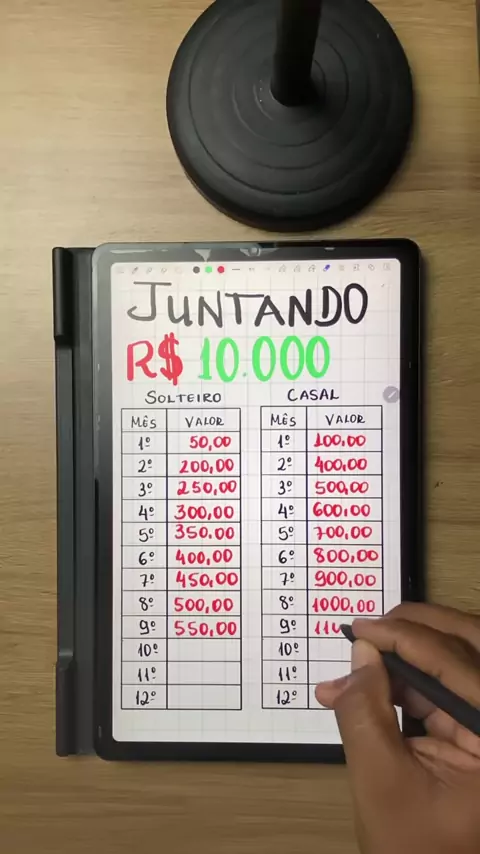 JUNTANDO
R$ 10.000
SOLTEIRO
MÊS VALOR
1º 50,00
2º 200,00
3º 250,00
4º 300,00
5º 350,00
6º 400,00
7º 450,00
8º 500,00
9º 550,00
10º
11º
12º
CASAL
MÊS VALOR
1º 100,00
2º 400,00
3º 500,00
4º 600,00
5º 700,00
6º 800,00
7º 900,00
8º 1000,00
9º
10º
11º
12º